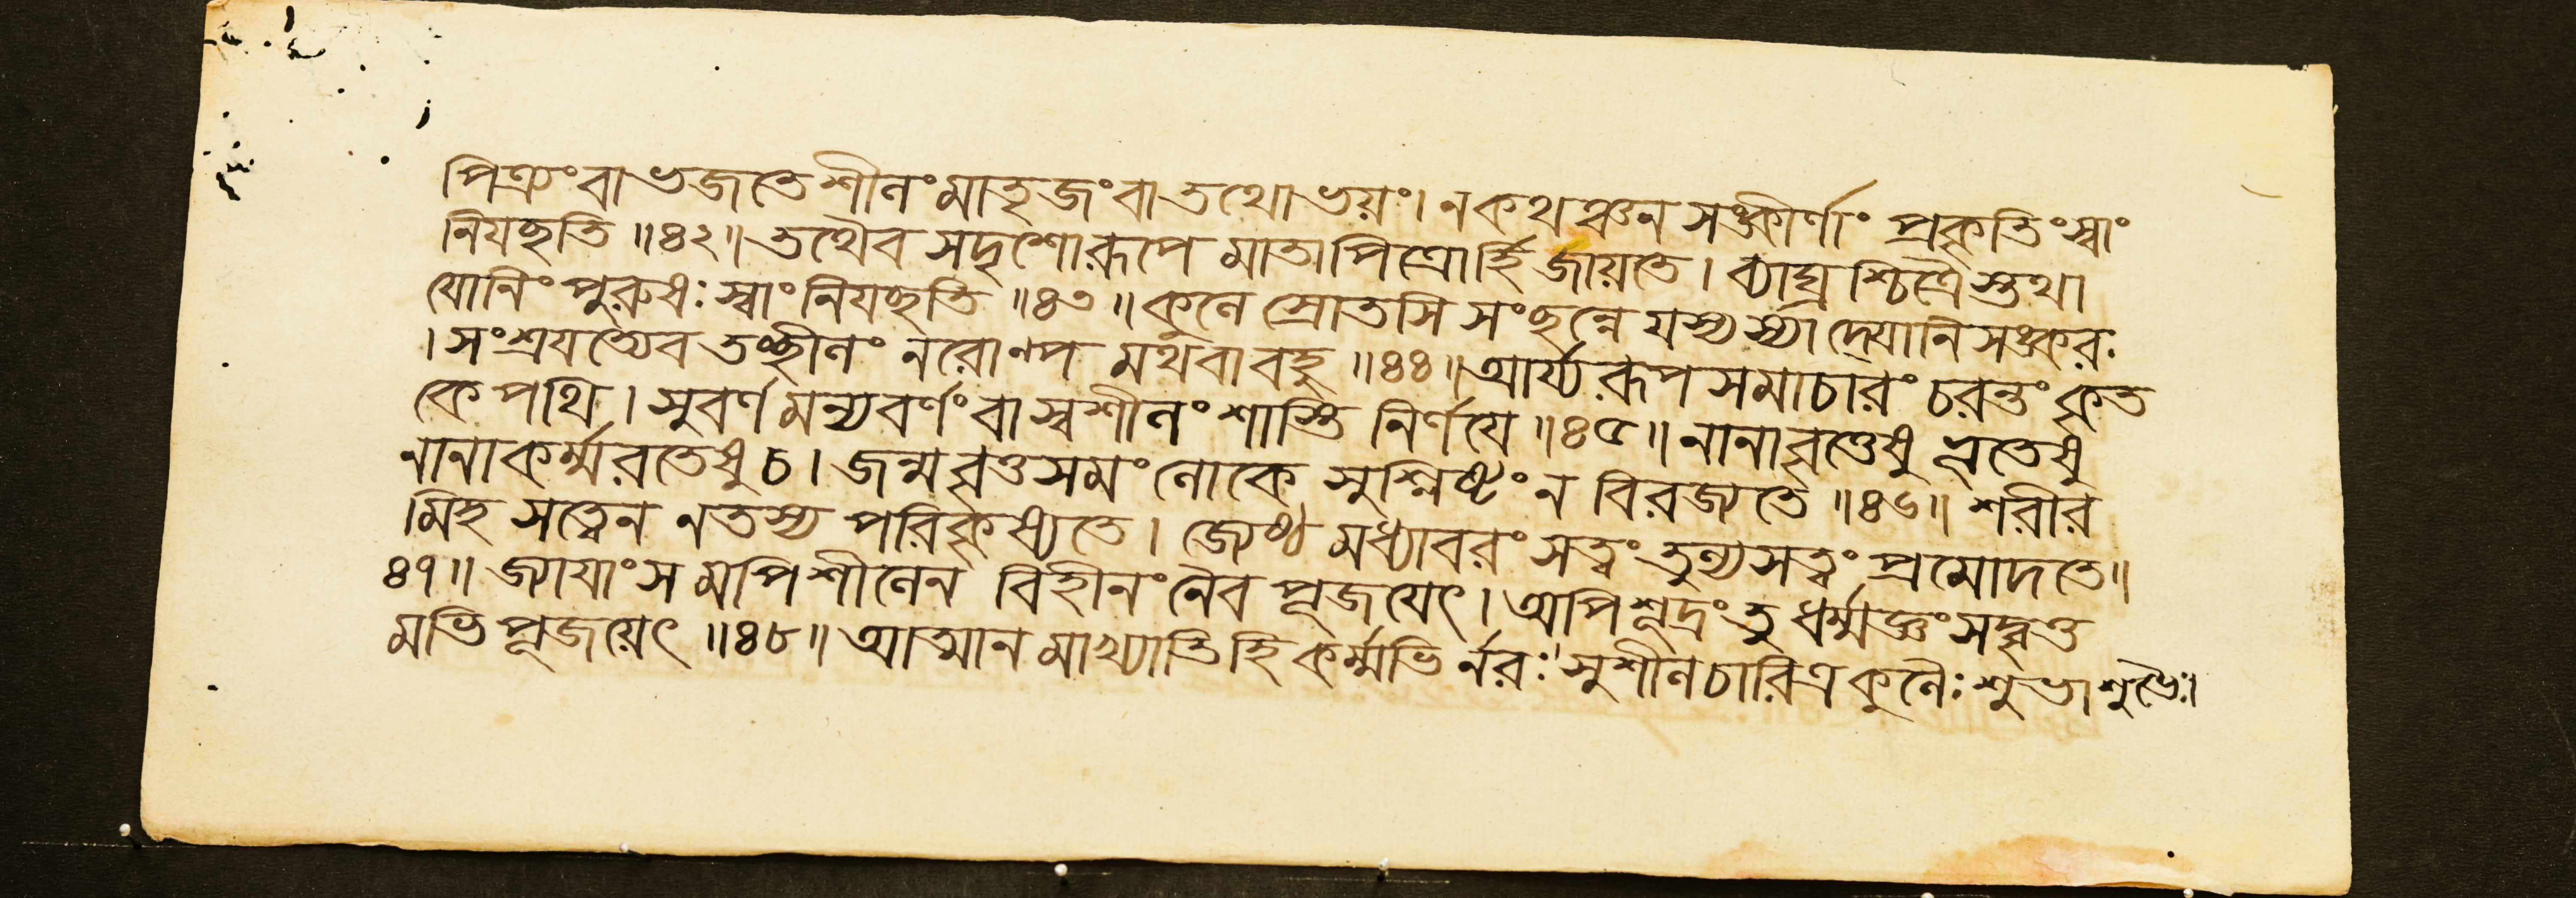 পিত্র্যং বা ভজতে শীলং মাতৃজং বা তথোভয়ং। ন কথঞ্চন সঙ্কীর্ণাং প্রকৃতিং স্বাং
নিযচ্ছতি ॥৪২॥ তথৈব সদৃশো রূপে মাতাপিত্রোর্হি জায়তে। ব্যাঘ্রশ্চিত্রৈস্তথা
যোনিং পুরুষঃ স্বাং নিযচ্ছতি ॥৪৩॥ কুলে স্রোতসি সংছন্নে যস্য স্যাদ্যোনিসঙ্করঃ
। সংশ্রযত্যেব তচ্ছীলং নরোল্প মথবা বহু ॥৪৪॥ আর্য্যরূপসমাচারং চরন্তং কৃত
কে পথি। সুবর্ণমন্যবর্ণং বা স্বশীলং শাস্তি নির্ণযে ॥৪৫॥ নানাবৃত্তেষু ভূতেষু
নানাকর্ম্মরতেষু চ। জন্মবৃত্তসমং লোকে সুশ্লিষ্টং ন বিরজ্যতে ॥৪৬॥ শরীর
মিহ সত্বেন ন তস্য পরিকৃষ্যতে। জ্যেষ্ঠমধ্যাবরং সত্বং তুল্যসত্বং প্রমোদতে॥
৪৭॥ জ্যাযাংসমপি শীলেন বিহীনং নৈব পূজযেৎ। অপি শূদ্রং তু ধর্ম্মজ্ঞং সদ্বৃত্ত
মভিপূজয়েৎ ॥৪৮॥ আত্মানমাখ্যাতি হি কর্ম্মভির্নরঃ সুশীলচারিত্রকুলৈঃ শুভাশুভৈঃ।